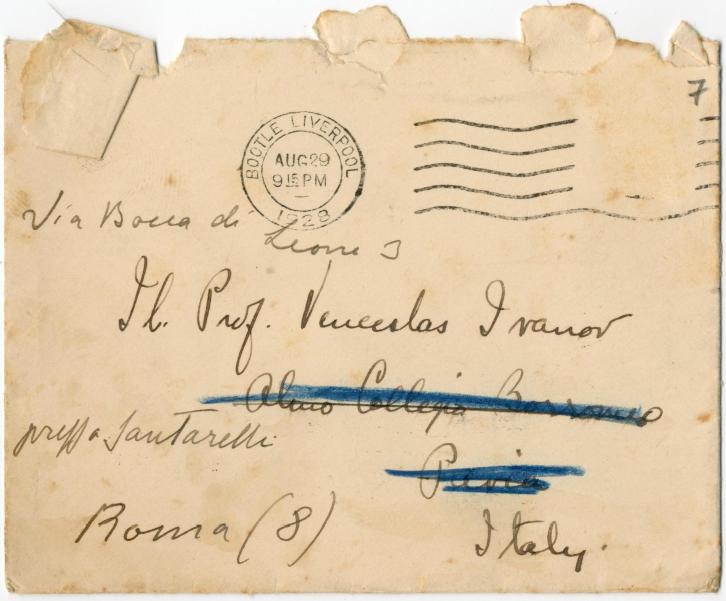 7
BOOTLE LIVERPOOL
AUG 29
9 15 PM
1928
Via Bocca di
Leone 3
Il. Prof. Venceslas Ivanov
Almo Collegio Borromeo
presso Santarelli
Pavia
Roma (8)
Italy.